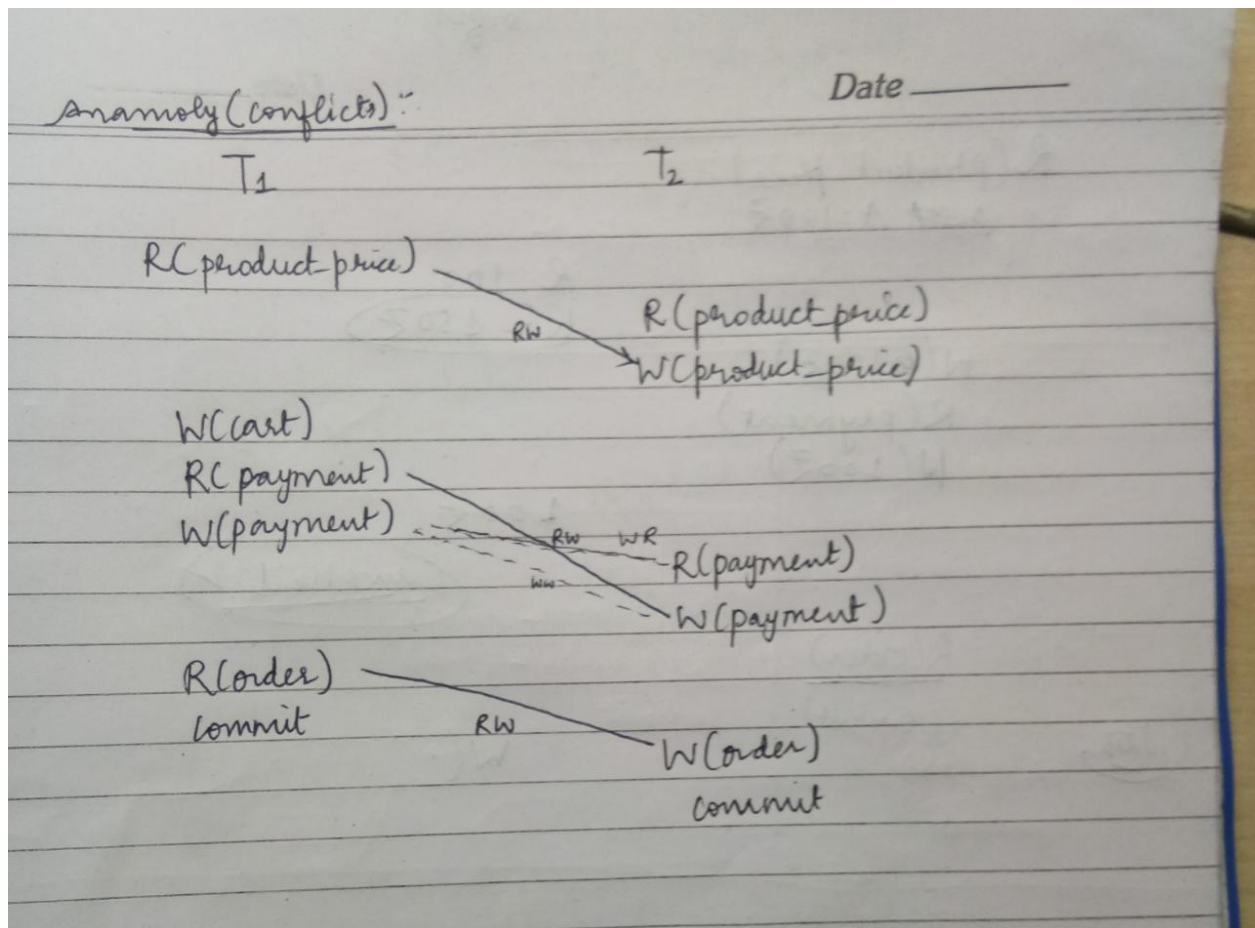 Date
Anamoly (conflicts):-
T1 T2
R(product_price)
R(product_price)
RW
W(product_price)
W(cart)
R(payment)
W(payment)
RW WR
R(payment)
WW
W(payment)
R(order)
commit RW
W(order)
commit